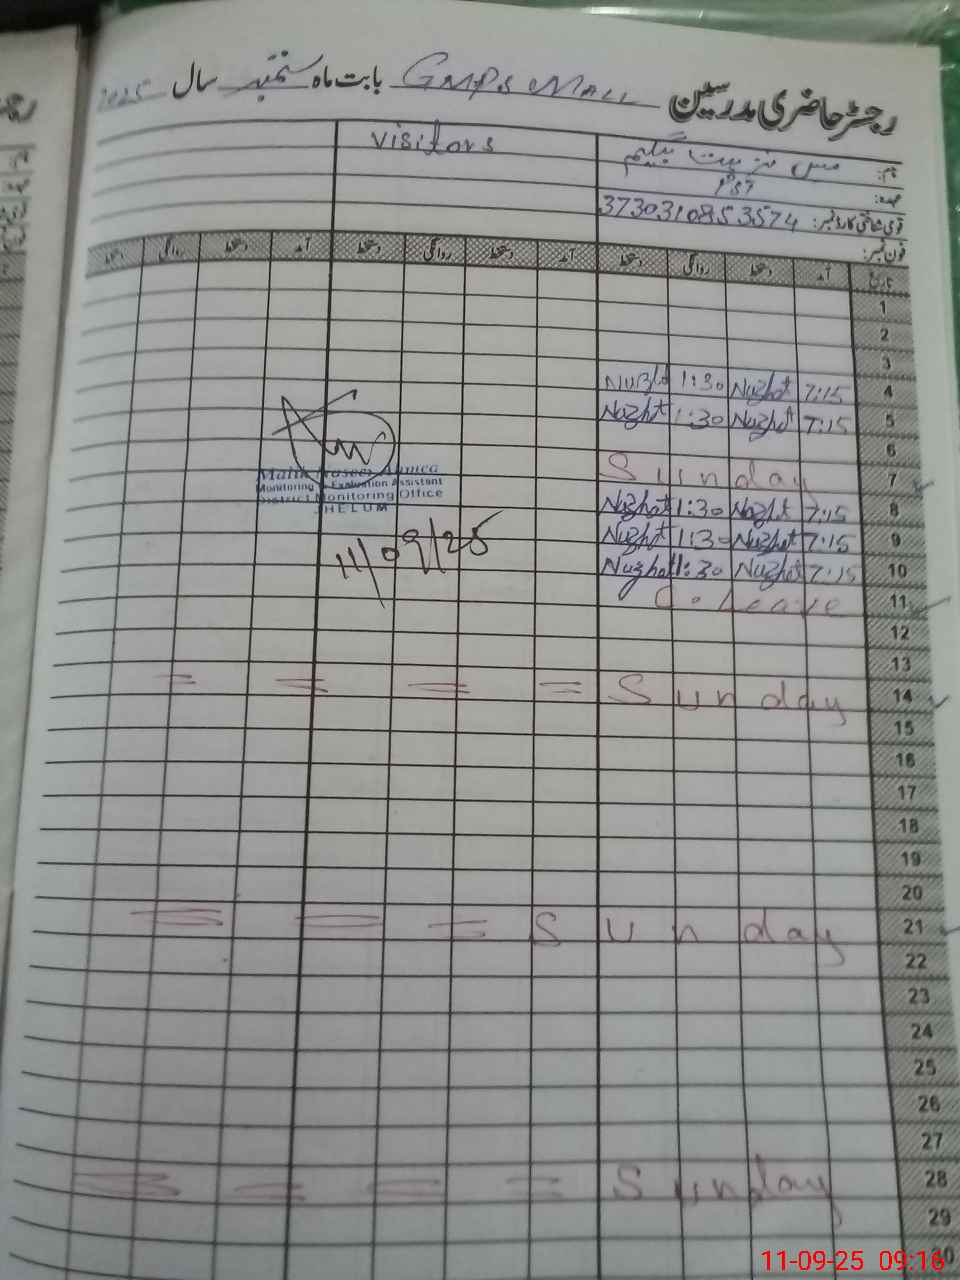 رجسٹر حاضری مدرسین GMPS MALL بابت ماہ ستمبر سال 2025
نام: مس نزہت بیگم visitors
عہدہ: PST
قومی شناختی کارڈ نمبر: 3730310853574
فون نمبر:
تاریخ آمد دستخط روانگی دستخط آمد دستخط روانگی دستخط آمد دستخط روانگی دستخط
1
2
3
4 7:15 Nuzhat 1:30 Nuzhat
5 7:15 Nuzhat 1:30 Nuzhat
6
7 Sunday
8 7:15 Nuzhat 1:30 Nuzhat
9 7:15 Nuzhat 1:30 Nuzhat
10 7:15 Nuzhat 1:30 Nuzhat
11 C. Leave
12
13
14 Sunday = = = =
15
16
17
18
19
20
21 Sunday = = =
22
23
24
25
26
27
28 Sunday = = = =
29
30
Malik Naseer Ahmed
Monitoring & Evaluation Assistant
District Monitoring Office
JHELUM
11/09/25
11-09-25 09:16